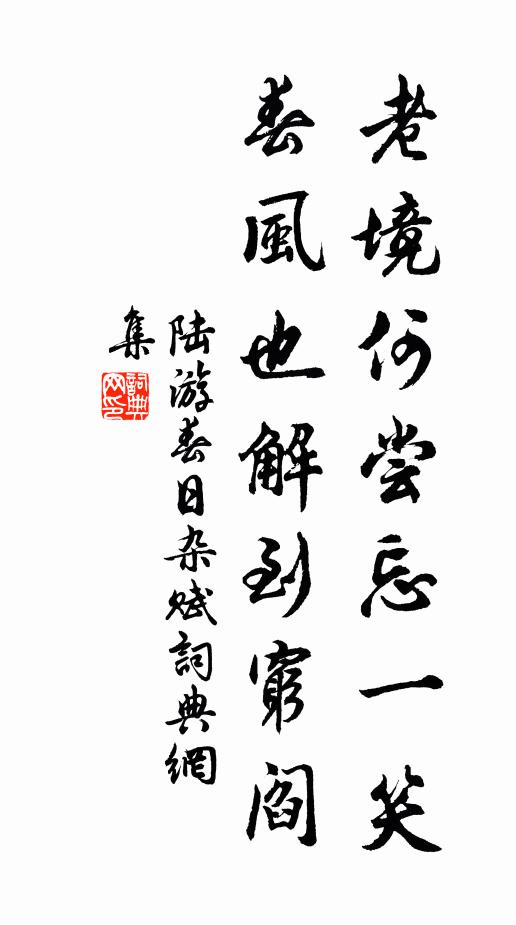 老境何尝忘一笑
春風也解到窮閻
陆游春日杂赋詞典網
集
詞典网印